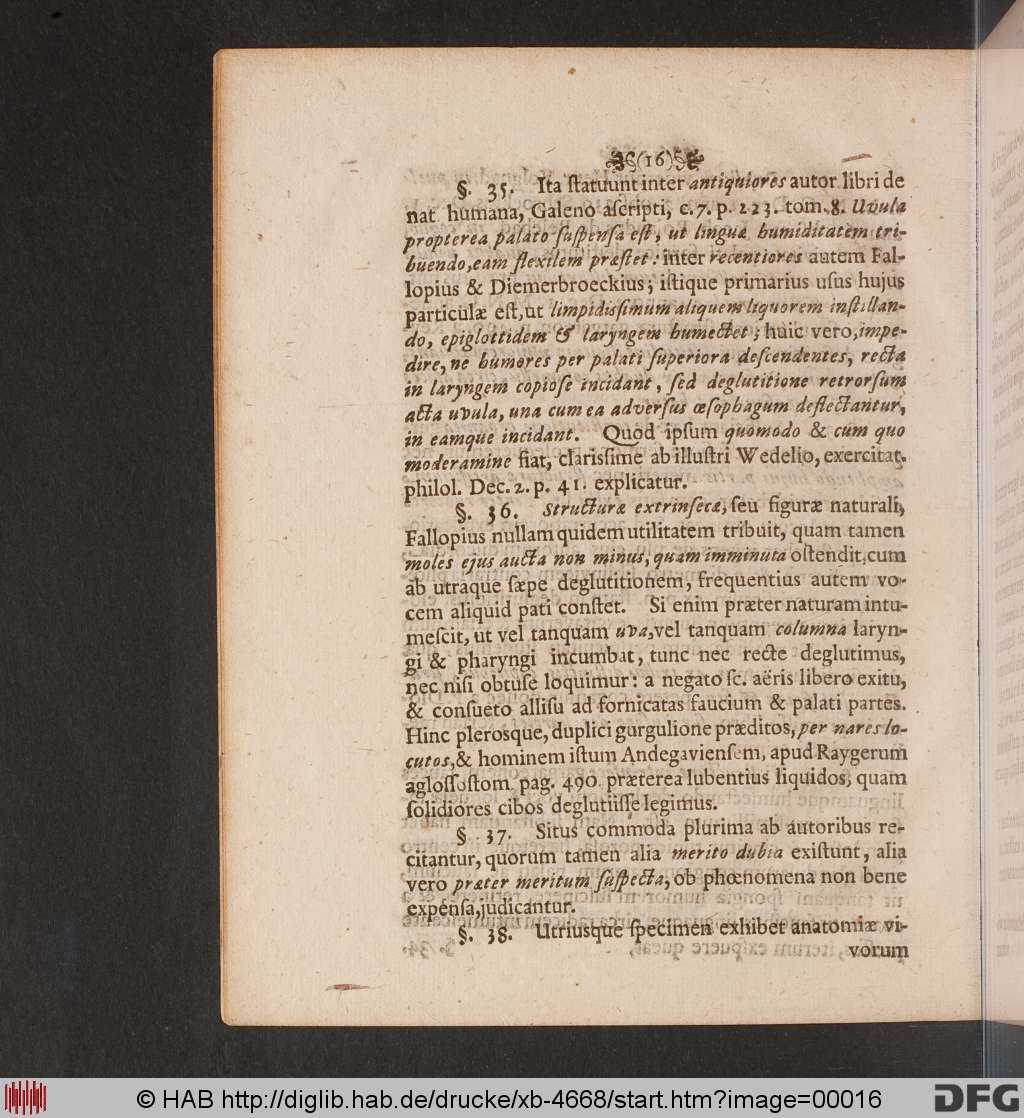 §(16)§
§. 35. Ita ſtatuunt inter antiquiores autor libri de
nat. humana, Galeno aſcripti, c. 7. p. 223. tom. 8. Uvula
propterea palato ſuſpenſa eſt, ut linguæ humiditatem tri-
buendo, eam flexilem præſtet: inter recentiores autem Fal-
lopius & Diemerbroeckius; iſtique primarius uſus hujus
particulæ eſt, ut limpidisſimum aliquem liquorem inſtillan-
do, epiglottidem & laryngem humectet; huic vero, impe-
dire, ne humores per palati ſuperiora deſcendentes, recta
in laryngem copioſe incidant, ſed deglutitione retrorſum
acta uvula, una cum ea adverſus œſophagum deflectantur,
in eamque incidant. Quod ipſum quomodo & cum quo
moderamine fiat, clarisſime ab illuſtri Wedelio, exercitat.
philol. Dec. 2. p. 41. explicatur.
§. 36. Structuræ extrinſecæ, ſeu figuræ naturali,
Fallopius nullam quidem utilitatem tribuit, quam tamen
moles ejus aucta non minus, quam imminuta oſtendit, cum
ab utraque ſæpe deglutitionem, frequentius autem vo-
cem aliquid pati conſtet. Si enim præter naturam intu-
meſcit, ut vel tanquam uva, vel tanquam columna laryn-
gi & pharyngi incumbat, tunc nec recte deglutimus,
nec niſi obtuſe loquimur: a negato ſc. aëris libero exitu,
& conſueto alliſu ad fornicatas faucium & palati partes.
Hinc plerosque, duplici gurgulione præditos, per nares lo-
cutos, & hominem iſtum Andegavienſem, apud Raygerum
agloſſoſtom. pag. 490 præterea lubentius liquidos, quam
ſolidiores cibos deglutiiſſe legimus.
§. 37. Situs commoda plurima ab autoribus re-
citantur, quorum tamen alia merito dubia exiſtunt, alia
vero præter meritum ſuſpecta, ob phœnomena non bene
expenſa, judicantur.
§. 38. Utriusque ſpecimen exhibet anatomiæ vi-
vorum
© HAB http://diglib.hab.de/drucke/xb-4668/start.htm?image=00016
DFG